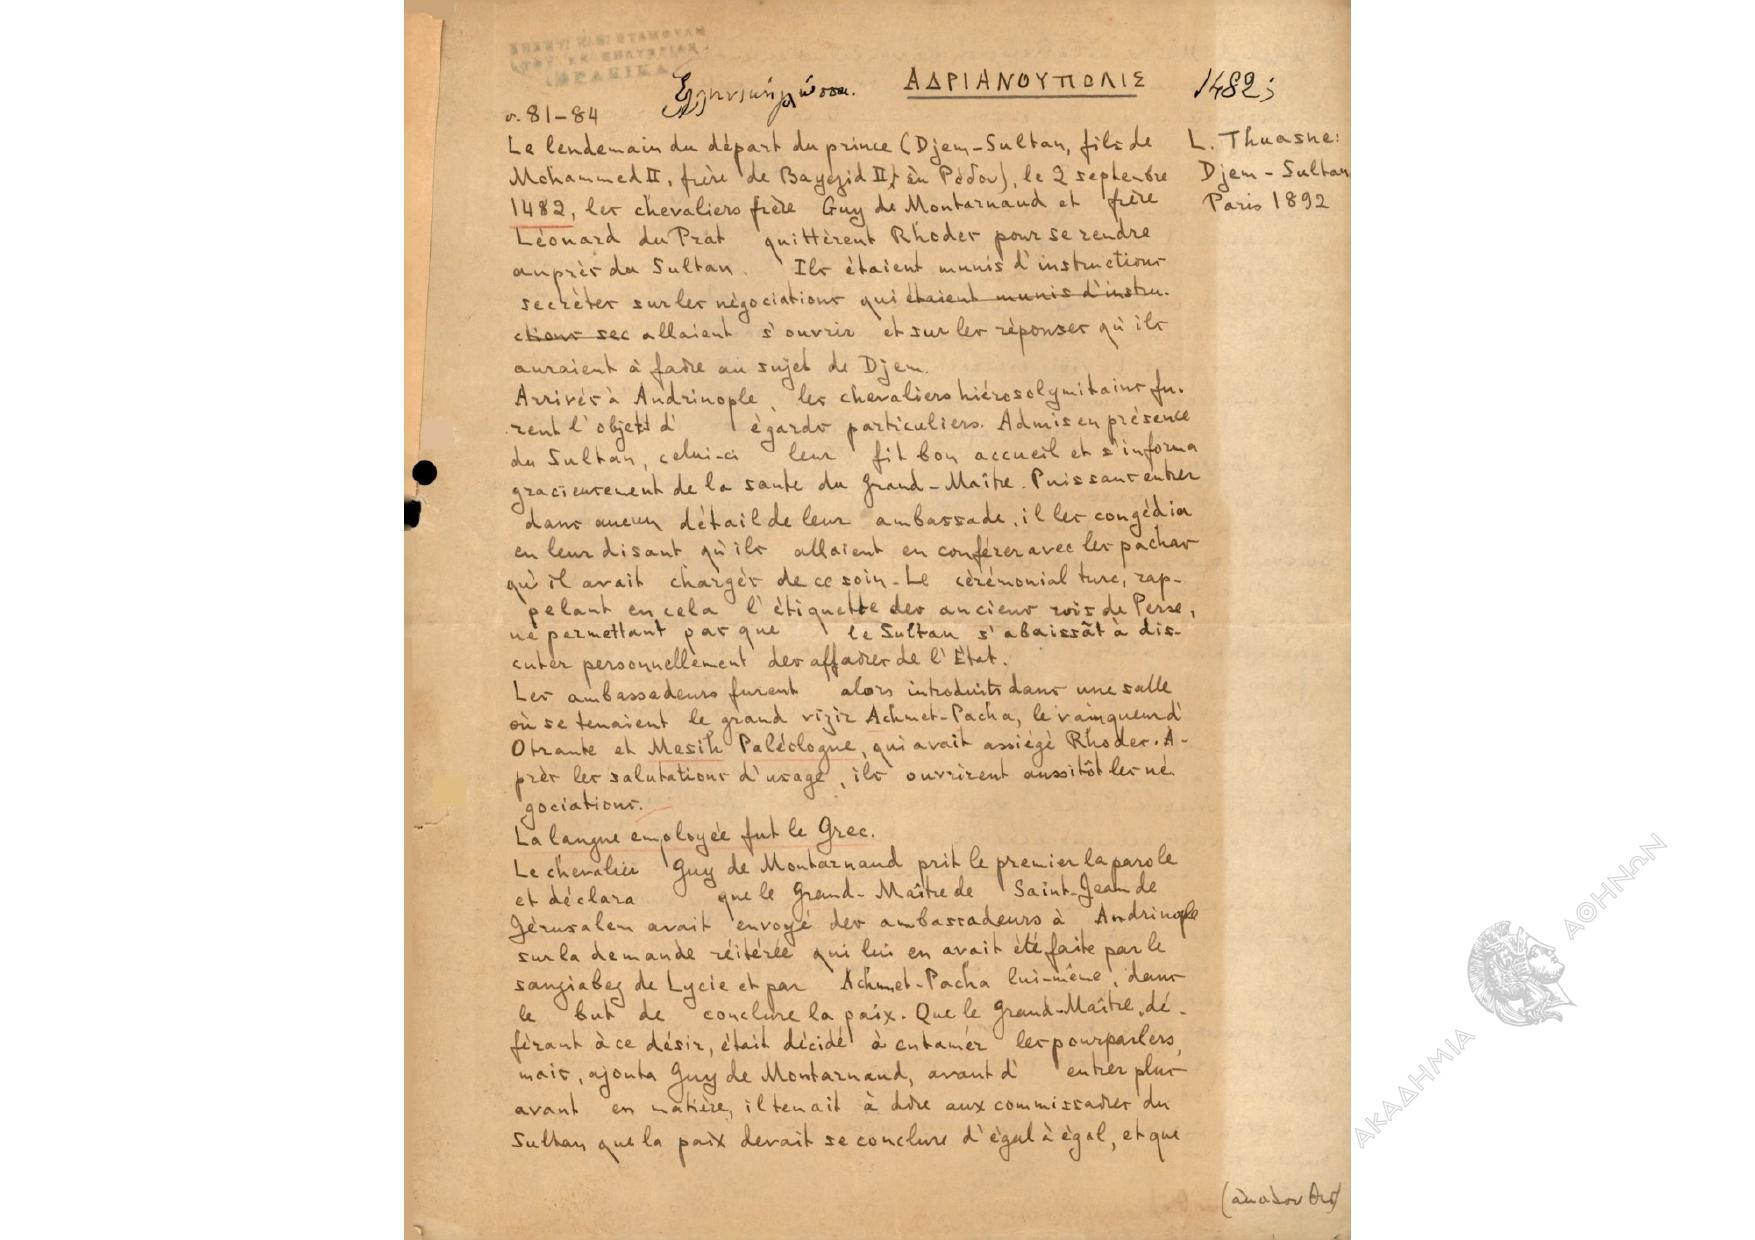 ΑΡΧΕΙΟΝ ΣΤΑΜΟΥΛΗ
ΘΡΑΚΙΚΑ
Ἑλληνική γλῶσσα. ΑΔΡΙΑΝΟΥΠΟΛΙΣ 1482;
σ. 81-84
L. Thuasne:
Djem-Sultan
Paris 1892
Le lendemain du départ du prince (Djem-Sultan, fils de
Mohammed II, frère de Bayezid II, ἐν Ρόδου), le 2 septembre
1482, les chevaliers frère Guy de Montarnaud et frère
Léonard du Prat quittèrent Rhodes pour se rendre
auprès du Sultan. Ils étaient munis d'instructions
secrètes sur les négociations qui étaient munis d'instru-
ctions sec allaient s'ouvrir et sur les réponses qu'ils
auraient à faire au sujet de Djem.
Arrivés à Andrinople, les chevaliers hiérosolymitains fu-
rent l'objet d' égards particuliers. Admis en présence
du Sultan, celui-ci leur fit bon accueil et s'informa
gracieusement de la santé du Grand-Maître. Puis sans entrer
dans aucun détail de leur ambassade, il les congédia
en leur disant qu'ils allaient en conférer avec les pachas
qu'il avait chargés de ce soin. Le cérémonial turc, rap-
pelant en cela l'étiquette des anciens rois de Perse,
ne permettant pas que le Sultan s'abaissât à dis-
cuter personnellement des affaires de l'État.
Les ambassadeurs furent alors introduits dans une salle
où se tenaient le grand vizir Achmet-Pacha, le vainqueur d'
Otrante et Mesih Paléologue, qui avait assiégé Rhodes. A-
près les salutations d'usage, ils ouvrirent aussitôt les né-
gociations.
La langue employée fut le Grec.
Le chevalier Guy de Montarnaud prit le premier la parole
et déclara que le Grand-Maître de Saint-Jean de
Jérusalem avait envoyé des ambassadeurs à Andrinople
sur la demande réitérée qui lui en avait été faite par le
sangiabeg de Lycie et par Achmet-Pacha lui-même, dans
le but de conclure la paix. Que le Grand-Maître, dé-
férant à ce désir, était décidé à entamer les pourparlers,
mais, ajouta Guy de Montarnaud, avant d' entrer plus
avant en matière, il tenait à dire aux commissaires du
Sultan que la paix devait se conclure d'égal à égal, et que
ΑΚΑΔΗΜΙΑ ΑΘΗΝΩΝ